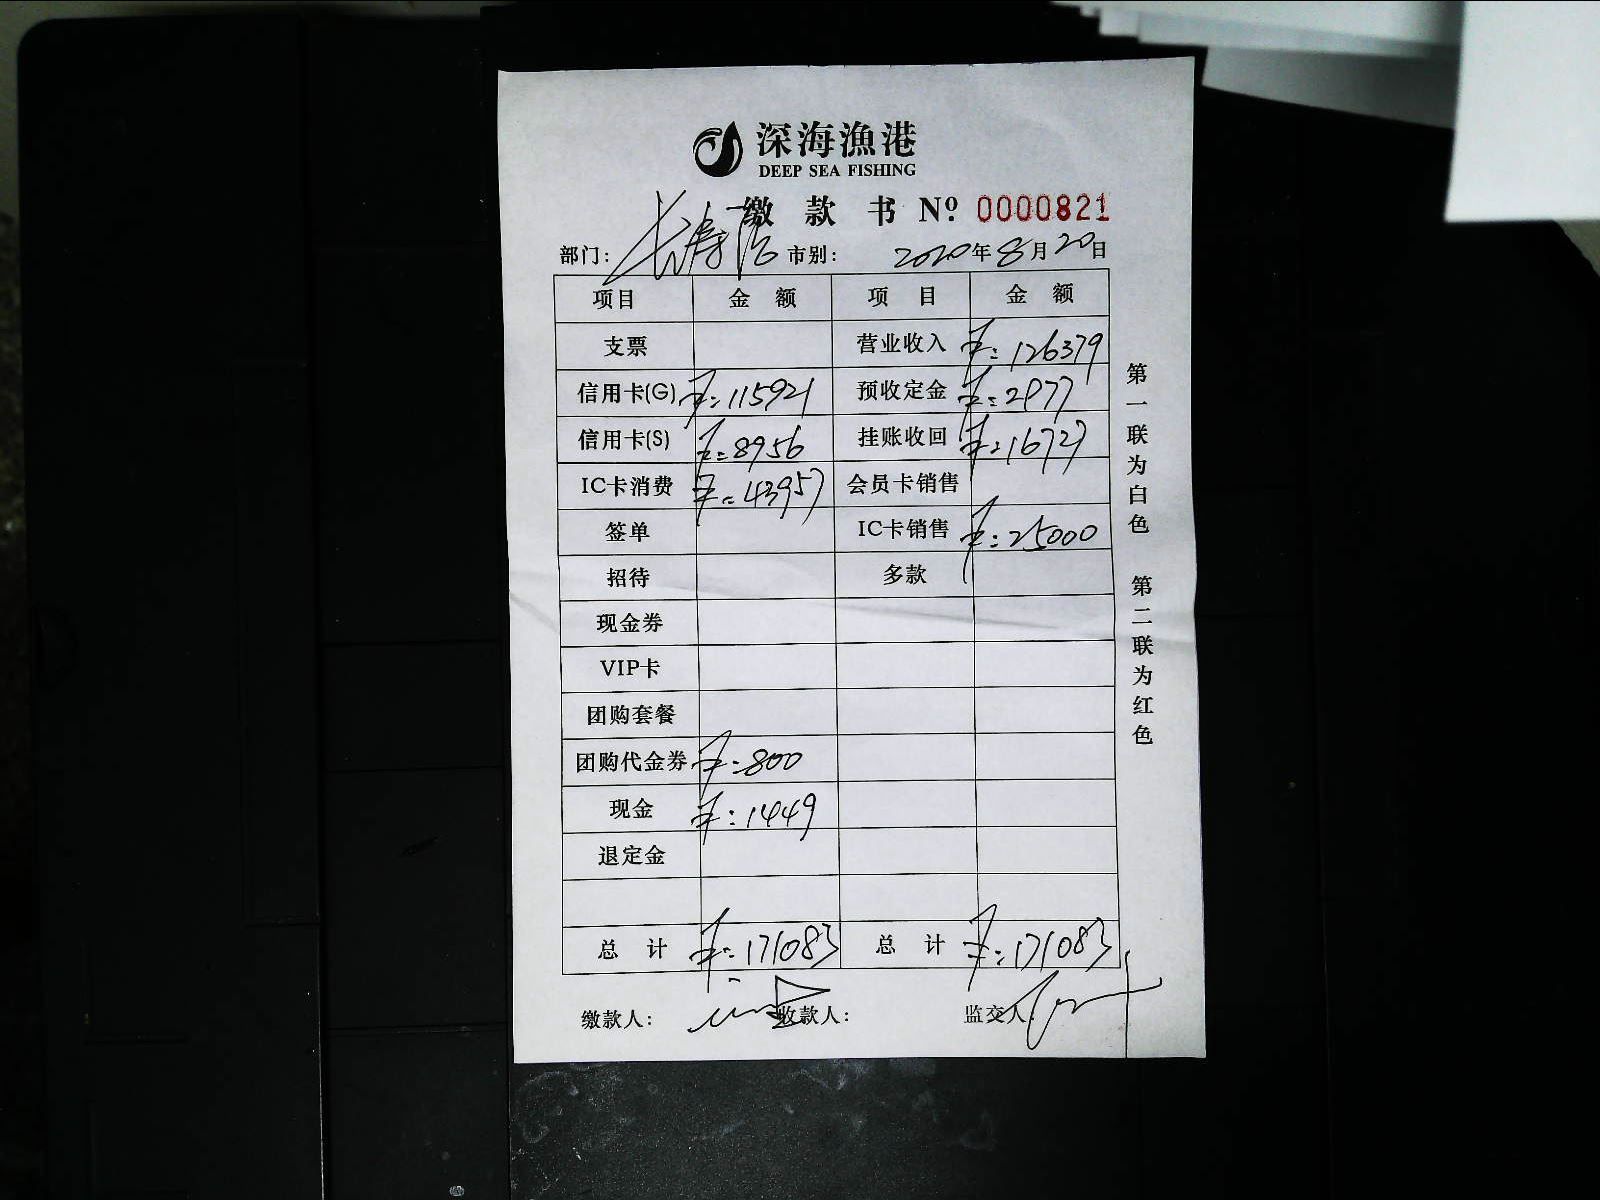 深海漁港
DEEP SEA FISHING
缴款书 Nº 0000821
部门: 长寿 市别: 2020年8月20日
项目 金额 项目 金额
支票 营业收入 ¥:126379
信用卡(G) ¥:115921 预收定金 ¥:2977
信用卡(S) ¥:8956 挂账收回 ¥:16727
IC卡消费 ¥:43957 会员卡销售
签单 IC卡销售 ¥:25000
招待 多款
现金券
VIP卡
团购套餐
团购代金券 ¥:800
现金 ¥:1449
退定金
总计 ¥:171083 总计 ¥:171083
缴款人: 收款人: 监交人:
第一联为白色 第二联为红色